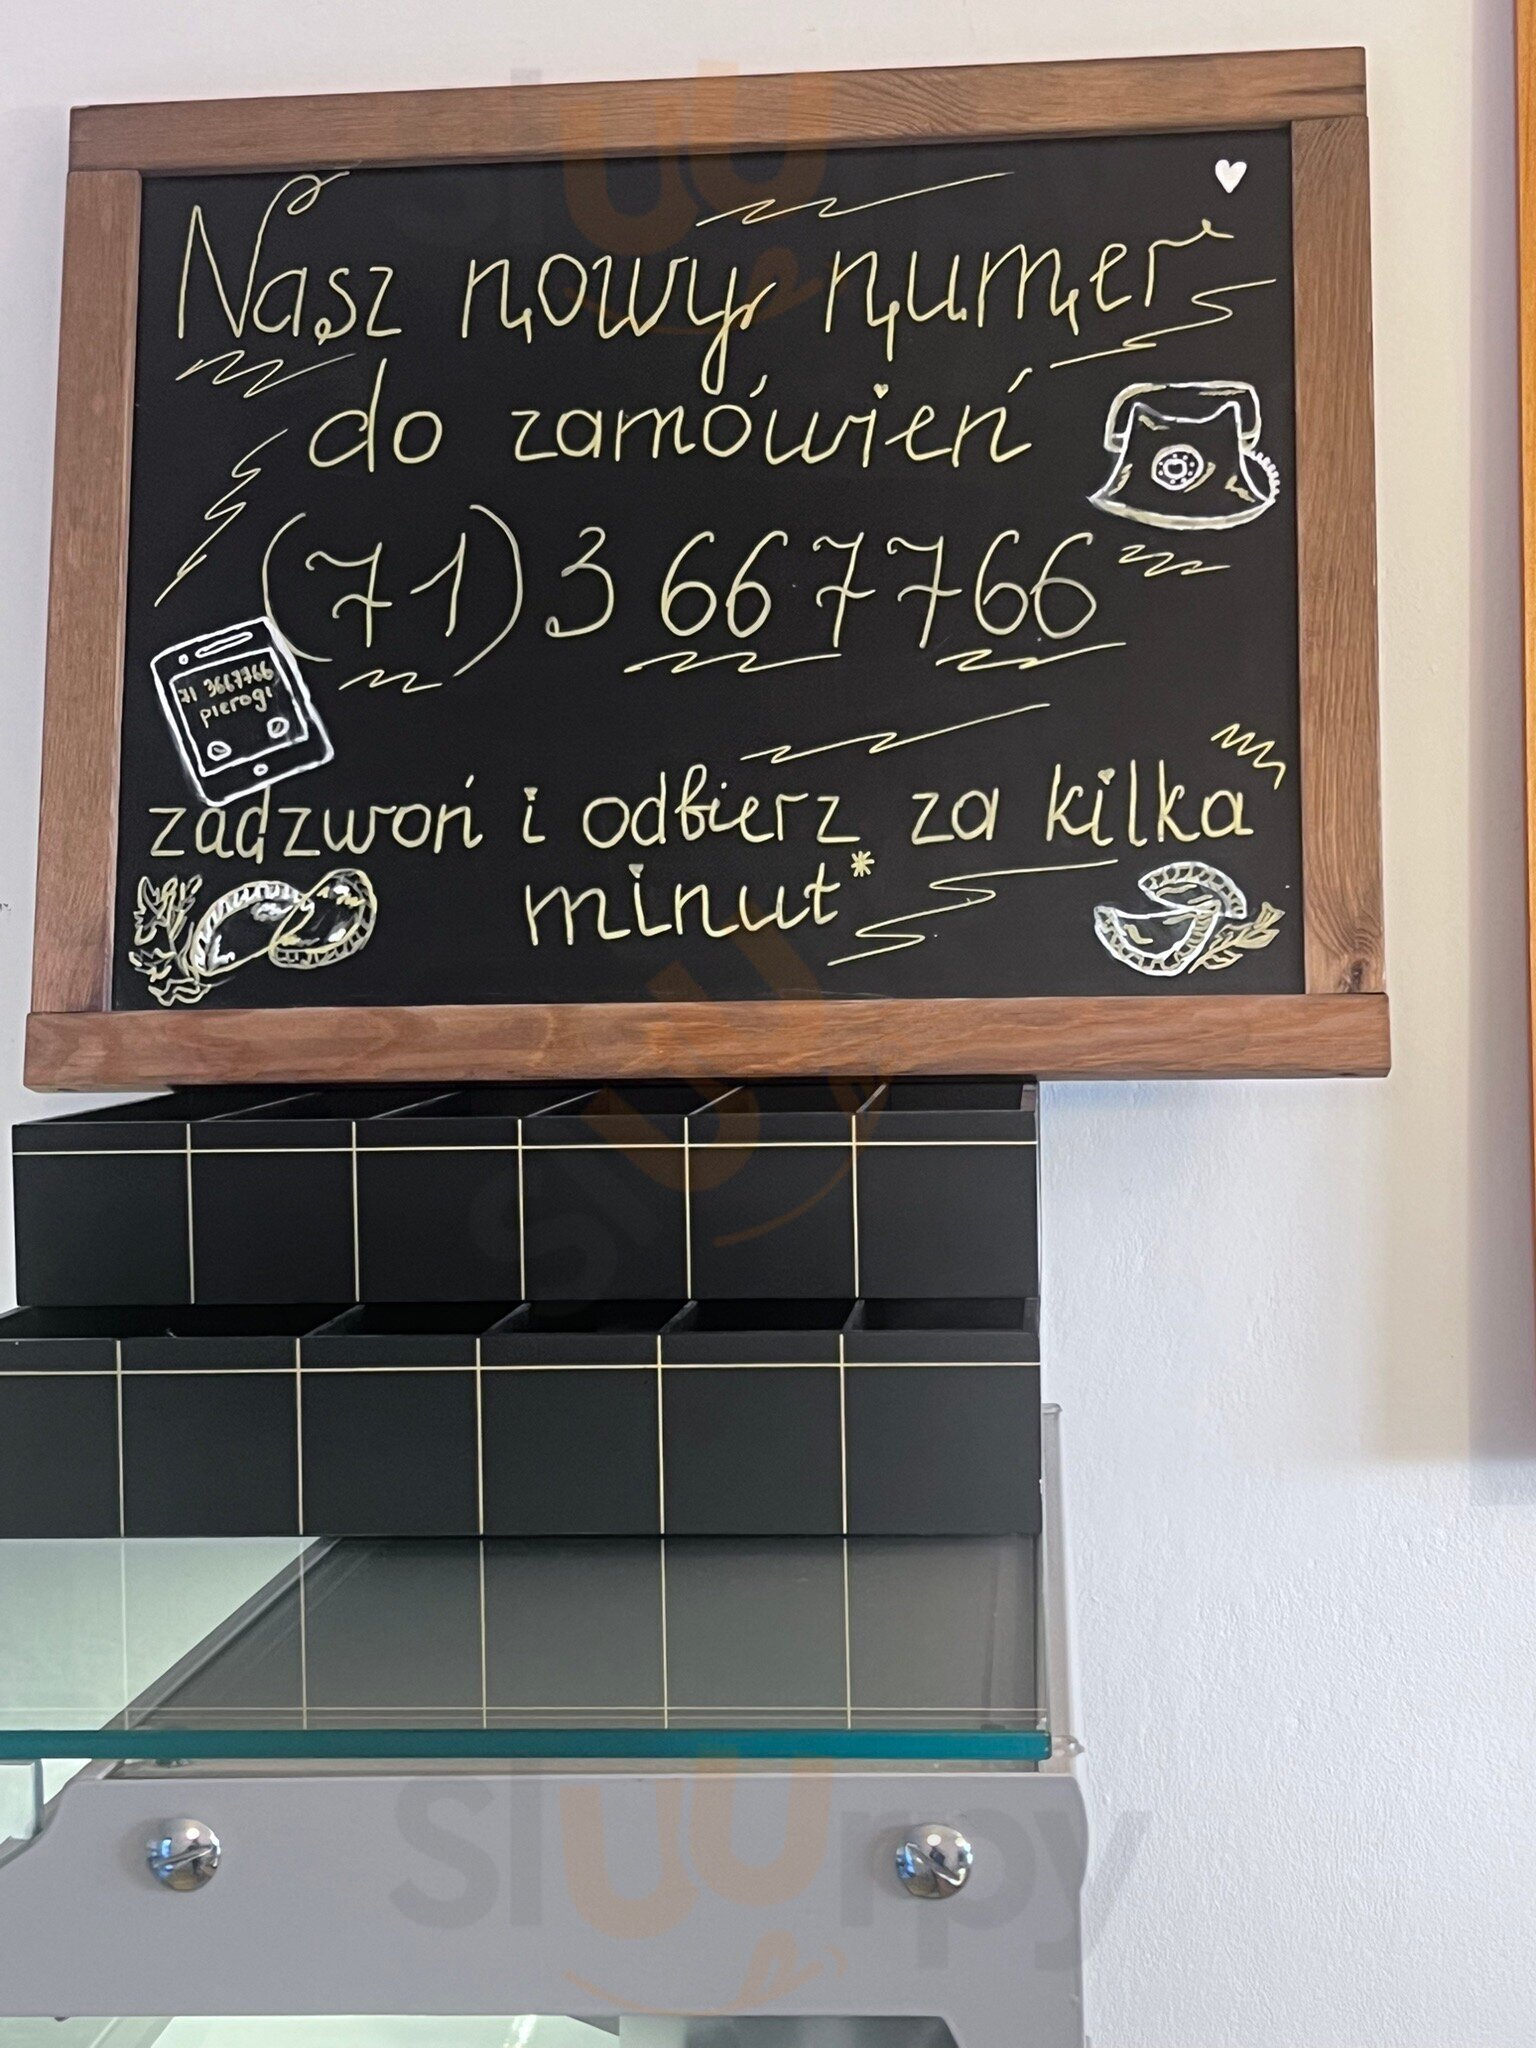 Nasz nowy numer
do zamówień
(71) 3 66 77 66
71 3667766
pierogi
zadzwoń i odbierz za kilka
minut*
sluurpy